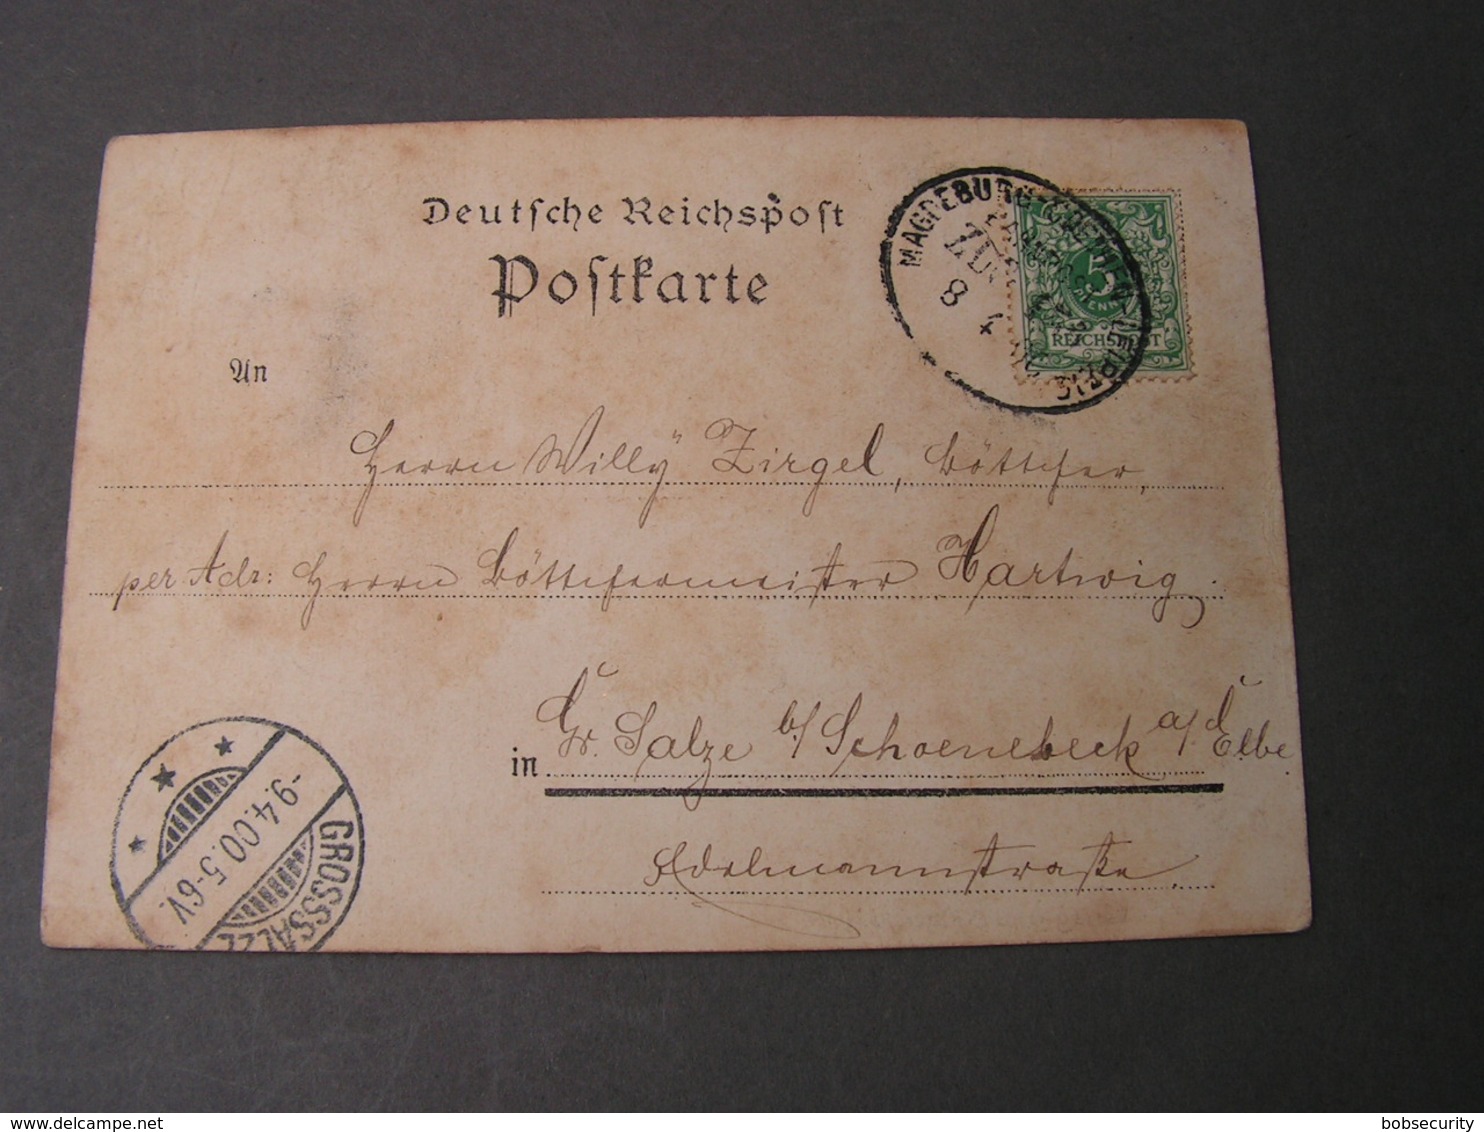 Deutsche Reichspost
Postkarte
MAGDEBURG-COETHEN-LEIPZIG
BAHNPOST
ZUG
8 4
5
REICHSPOST
An
Herrn Willy Zirgel, Böttcher,
per Adr: Herrn Böttchermeister Hartwig.
in Gr. Salze b/Schoenebeck a/Elbe
Edelmannstraße
GROSSSALZE
-9.4.00.5-6V.
bobsecurity